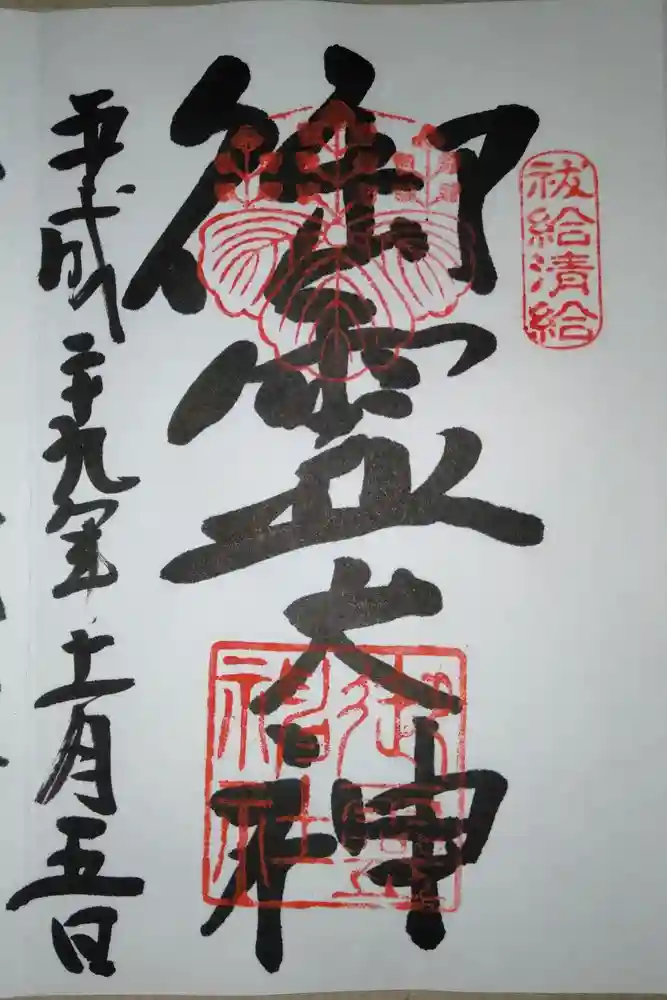 祓給清給
御霊大神
御霊
神社
平成二十九年十一月五日